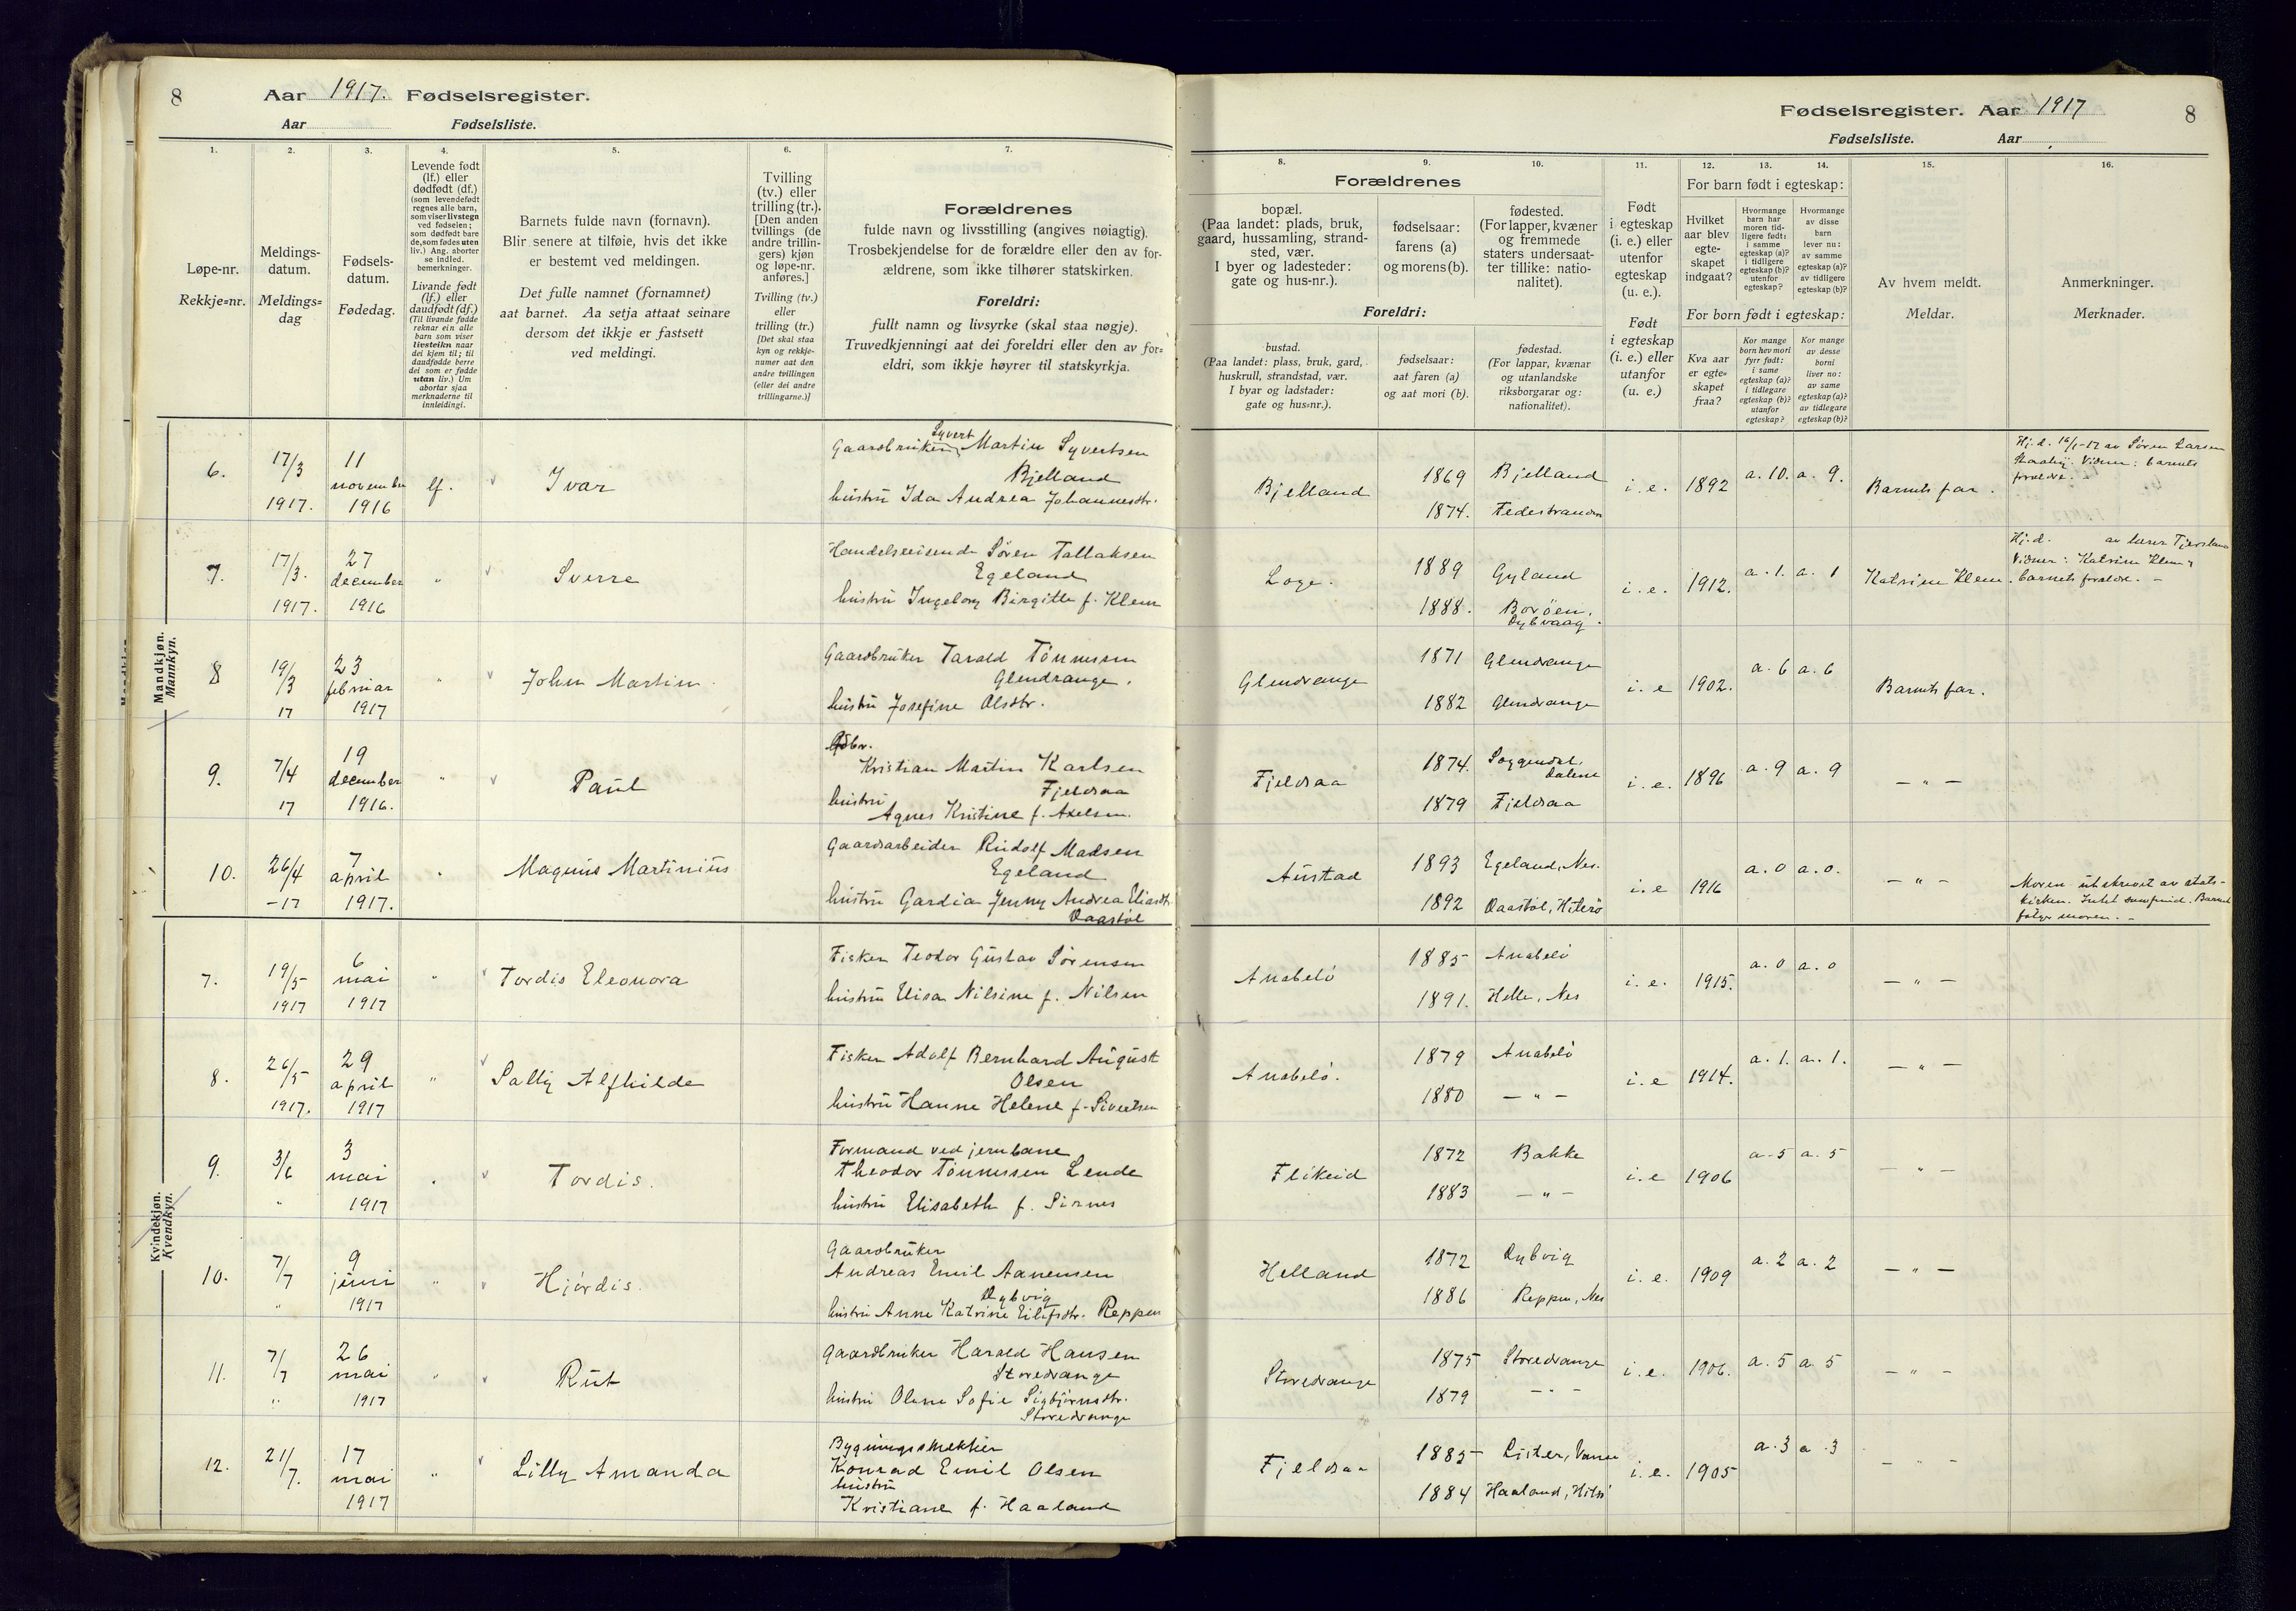 8
Aar 1917. Fødselsregister.
Aar Fødselsliste.
1.
2.
3.
4.
5.
6.
7.
Løpe-nr.
Rekkje=nr.
Meldings-
datum.
Meldings=
dag
Fødsels-
datum.
Fødedag.
Levende født
(lf.) eller
dødfødt (df.)
(som levendefødt
regnes alle barn,
som viser livstegn
ved fødselen;
som dødfødt bare
de, som fødes uten
liv.) Ang. aborter
se indled.
bemerkninger.
Livande født
(lf.) eller
daudfødt (df.)
(Til livande fødde
reknar ein alle
barn som viser
livsteikn naar
dei kjem til; til
daudfødde berre
dei som er fødde
utan liv.) Um
abortar sjaa
merknaderne til
innleidingi.
Barnets fulde navn (fornavn).
Blir senere at tilføie, hvis det ikke
er bestemt ved meldingen.
Det fulle namnet (fornamnet)
aat barnet. Aa setja attaat seinare
dersom det ikkje er fastsett
ved meldingi.
Tvilling
(tv.) eller
trilling (tr.).
[Den anden
tvillings (de
andre trillin-
gers) kjøn
og løpe-nr.
anføres.]
Tvilling (tv.)
eller
trilling (tr.)
[Det skal staa
kyn og rekkje-
numer aat den
andre tvillingen
(eller dei andre
trillingarne.)]
Forældrenes
fulde navn og livsstilling (angives nøiagtig).
Trosbekjendelse for de forældre eller den av for-
ældrene, som ikke tilhører statskirken.
Foreldri:
fullt namn og livsyrke (skal staa nøgje).
Truvedkjenningi aat dei foreldri eller den av for=
eldri, som ikkje høyrer til statskyrkja.
Mandkjøn.
Mannkyn.
6.
17/3
1917.
11
november
1916
lf.
Ivar
Gaardbruker Syvert Martin Syvertsen
Bjelland
hustru Ida Andrea Johannesdtr.
7.
17/3.
1917.
27
december
1916
"
Sverre
Handelsreisende Sören Tallaksen
Egeland
hustru Ingeborg Birgitte f. Klem
8
19/3
17
23
februar
1917
"
John Martin
Gaardbruker Tarald Tönnessen
Glendrange.
hustru Josefine Olsdtr.
9.
7/4
17
19
december
1916.
"
Paul
Gdbr.
Kristian Martin Karlsen
Fjeldsaa
hustru
Agnes Kristine f. Axelsen.
10.
26/4
-17
7
april
1917.
"
Magnus Martinius
Gaardsarbeider Rudolf Madsen
Egeland
hustru Gardia Jenny Andrea Eliasdtr.
Daastöl
Kvindekjøn.
Kvendkyn.
7.
19/5
1917
6
mai
1917
"
Tordis Eleonora
Fisker Teodor Gustav Sörensen
hustru Elisa Nilsine f. Nilsen
8.
26/5
1917.
29
april
1917
"
Sally Alfhilde
Fisker Adolf Bernhard August
Olsen
hustru Hanne Helene f. Sivertsen
9.
3/6
"
3
mai
1917
"
Tordis.
Formand ved jernbane
Theodor Tönnessen Lende
hustru Elisabeth f. Sirnes
10.
7/7
"
9
juni
1917
"
Hjördis.
Gaardbruker
Andreas Emil Aanensen
Dybvig
hustru Anne Katrine Eilefsdtr. Reppen
11.
7/7
"
26
mai
1917
"
Rut
Gaardbruker Harald Hansen
Storedrange
hustru Olene Sofie Sigbjörnsdtr.
Storedrange
12.
21/7.
17
mai
1917
"
Lilly Amanda
Bygningssnekker
Konrad Emil Olsen
hustru
Kristiane f. Haaland
Fødselsregister. Aar 1917
8
Fødselsliste. Aar
8.
9.
10.
11.
12.
13.
14.
15.
16.
Forældrenes
bopæl.
(Paa landet: plads, bruk,
gaard, hussamling, strand-
sted, vær.
I byer og ladesteder:
gate og hus-nr.).
fødselsaar:
farens (a)
og morens (b).
fødested.
(For lapper, kvæner
og fremmede
staters undersaat-
ter tillike: natio-
nalitet).
Foreldri:
bustad.
(Paa landet: plass, bruk, gard,
huskrull, strandstad, vær.
I byar og ladstader:
gate og hus=nr.).
fødselsaar:
aat faren (a)
og aat mori (b).
fødestad.
(For lappar, kvænar
og utanlandske
riksborgarar og:
nationalitet).
Født
i egteskap
(i. e.) eller
utenfor
egteskap
(u. e.).
Født
i egteskap
(i. e.) eller
utanfor
(u. e.)
For barn født i egteskap:
Hvilket
aar blev
egte-
skapet
indgaat?
Hvormange
barn har
moren tid-
ligere født:
i samme
egteskap (a)?
i tidligere
egteskap (b)?
utenfor
egteskap?
Hvormange
av disse
barn
lever nu:
av samme
egteskap (a)?
av tidligere
egteskap (b)?
For born født i egteskap:
Kva aar
er egte=
skapet
fraa?
Kor mange
born hev mori
fyrr født:
i same
egteskap (a)?
i tidlegare
egteskap (b)?
utanfor
egteskap?
Kor mange
av desse
borni
liver no:
av same
egteskap (a)?
av tidlegare
egteskap (b)?
Av hvem meldt.
Meldar.
Anmerkninger.
Merknader.
Bjelland
1869
1874.
Bjelland
Fedestranden
i. e.
1892
a. 10.
a. 9.
Barnets far.
Hj. d. 16/1-17 av Sören Larsen
Vidner: barnets
foreldre.
Loge.
1889
1888.
Gyland
Boröen,
Dybvaag.
i. e.
1912.
a. 1.
a. 1
Katrine Klem.
Hj. d. av lærer Tjersland
Vidner: Katrine Klem &
barnets foreldre. -
Glendrange
1871
1882
Glendrange
Glendrange
i. e
1902.
a. 6
a. 6
Barnets far.
Fjeldsaa
1874.
1879
Soggendal,
Dalene
Fjeldsaa
i. e.
1896
a. 9
a. 9
- " -
Austad
1893
1892
Egeland, Nes.
Daastöl, Hiterö
i. e
1916
a. 0
a. 0.
- " -
Moren utskrevet av stats-
kirken. Intet samfund. Barnet
følger moren. -
Anabelö
1885
1891.
Anabelö
Helle, Nes
i. e.
1915.
a. 0
a. 0
- " -
Anabelö.
1879
1880
Anabelö
- " -
i. e
1914.
a. 1.
a. 1.
- " -
Flikeid
1872
1883
Bakke
- " -
i. e
1906
a. 5
a. 5
- " -
Helland
1872
1886
Dybvig
Reppen, Nes
i. e.
1909
a. 2
a. 2
- " -
Storedrange
1875
1879
Storedrange
- " -
i. e.
1906.
a. 5
a. 5
- " -
Fjeldsaa
1885
1884
Lister, Vanse
Haaland, Hiterö
i. e.
1905
a. 3
a. 3
- " -